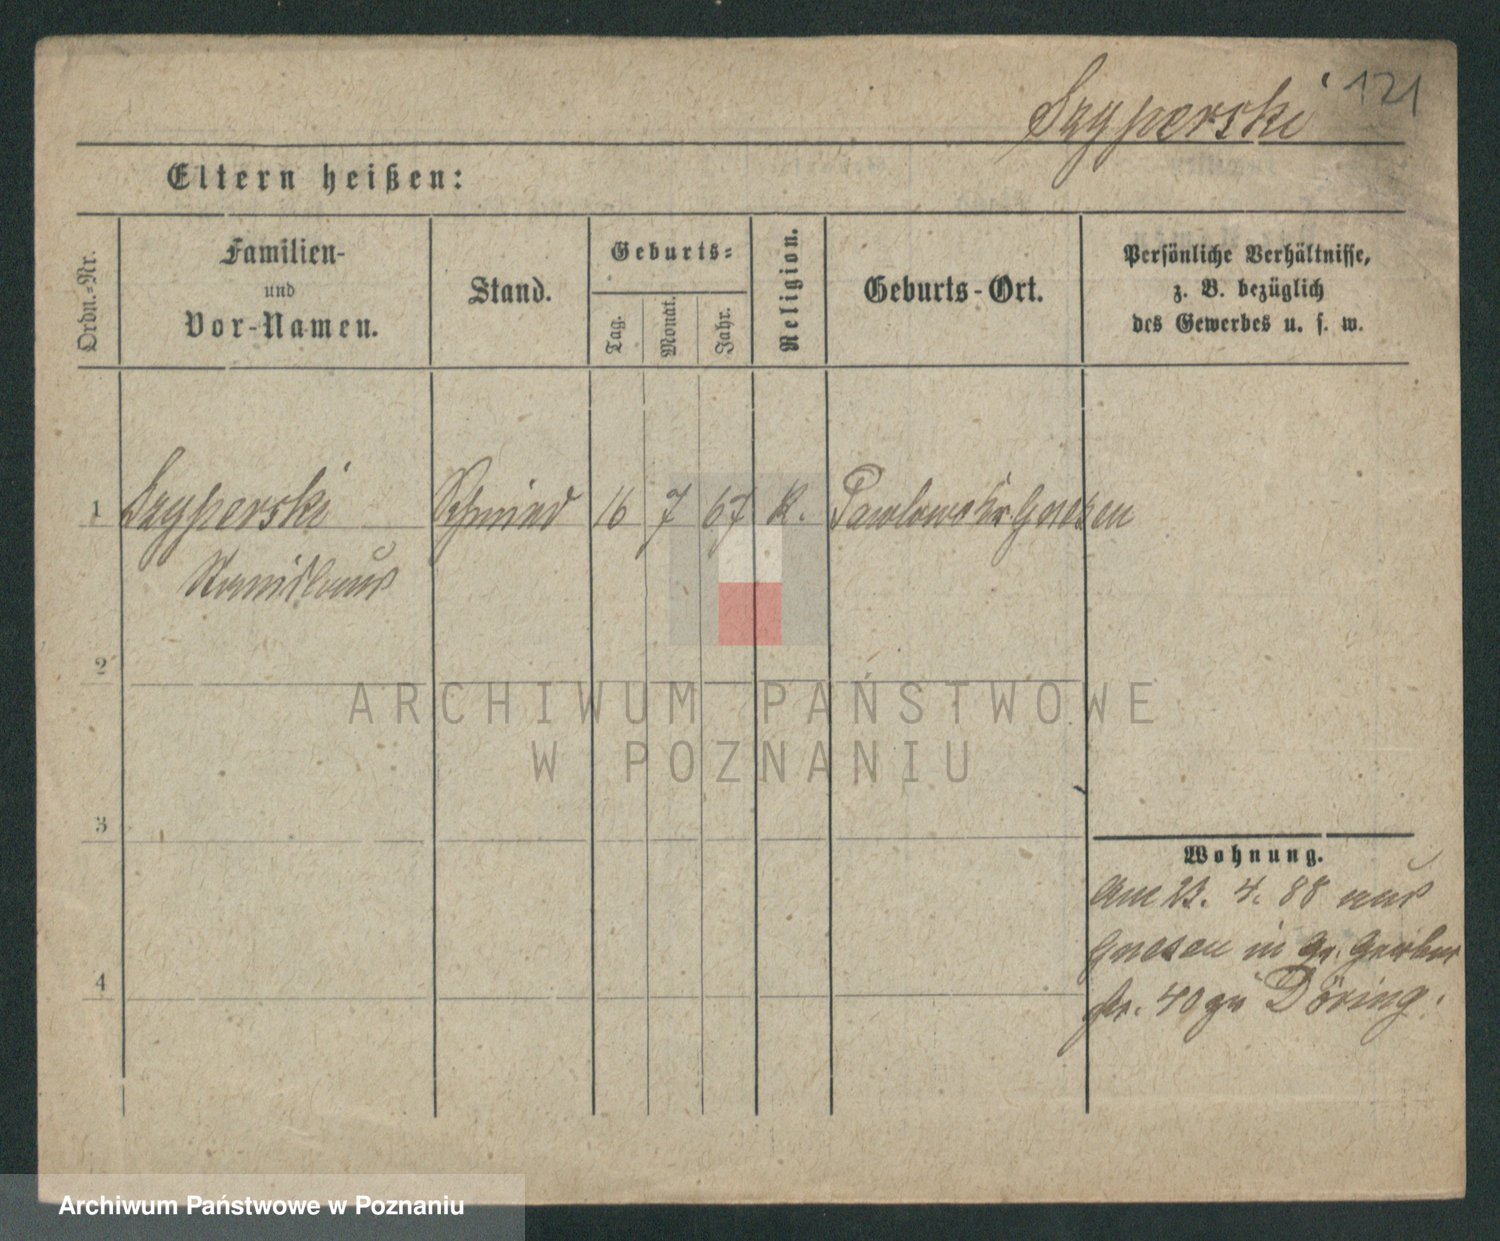 Szyperski
121
Eltern heißen:
Ordn.-Nr.
Familien-
und
Vor-Namen.
Stand.
Geburts-
Tag.
Monat.
Jahr.
Religion.
Geburts-Ort.
Persönliche Verhältnisse,
z. B. bezüglich
des Gewerbes u. s. w.
1 Szyperski Schmied 16 7 67 K. Pawlowo Kr. Gnesen
Stanislaus
2
3
4
Wohnung.
Am 23. 4. 88 aus
Gnesen in Gr. Gerber
str. 40 zu Döring.
ARCHIWUM PAŃSTWOWE
W POZNANIU
Archiwum Państwowe w Poznaniu